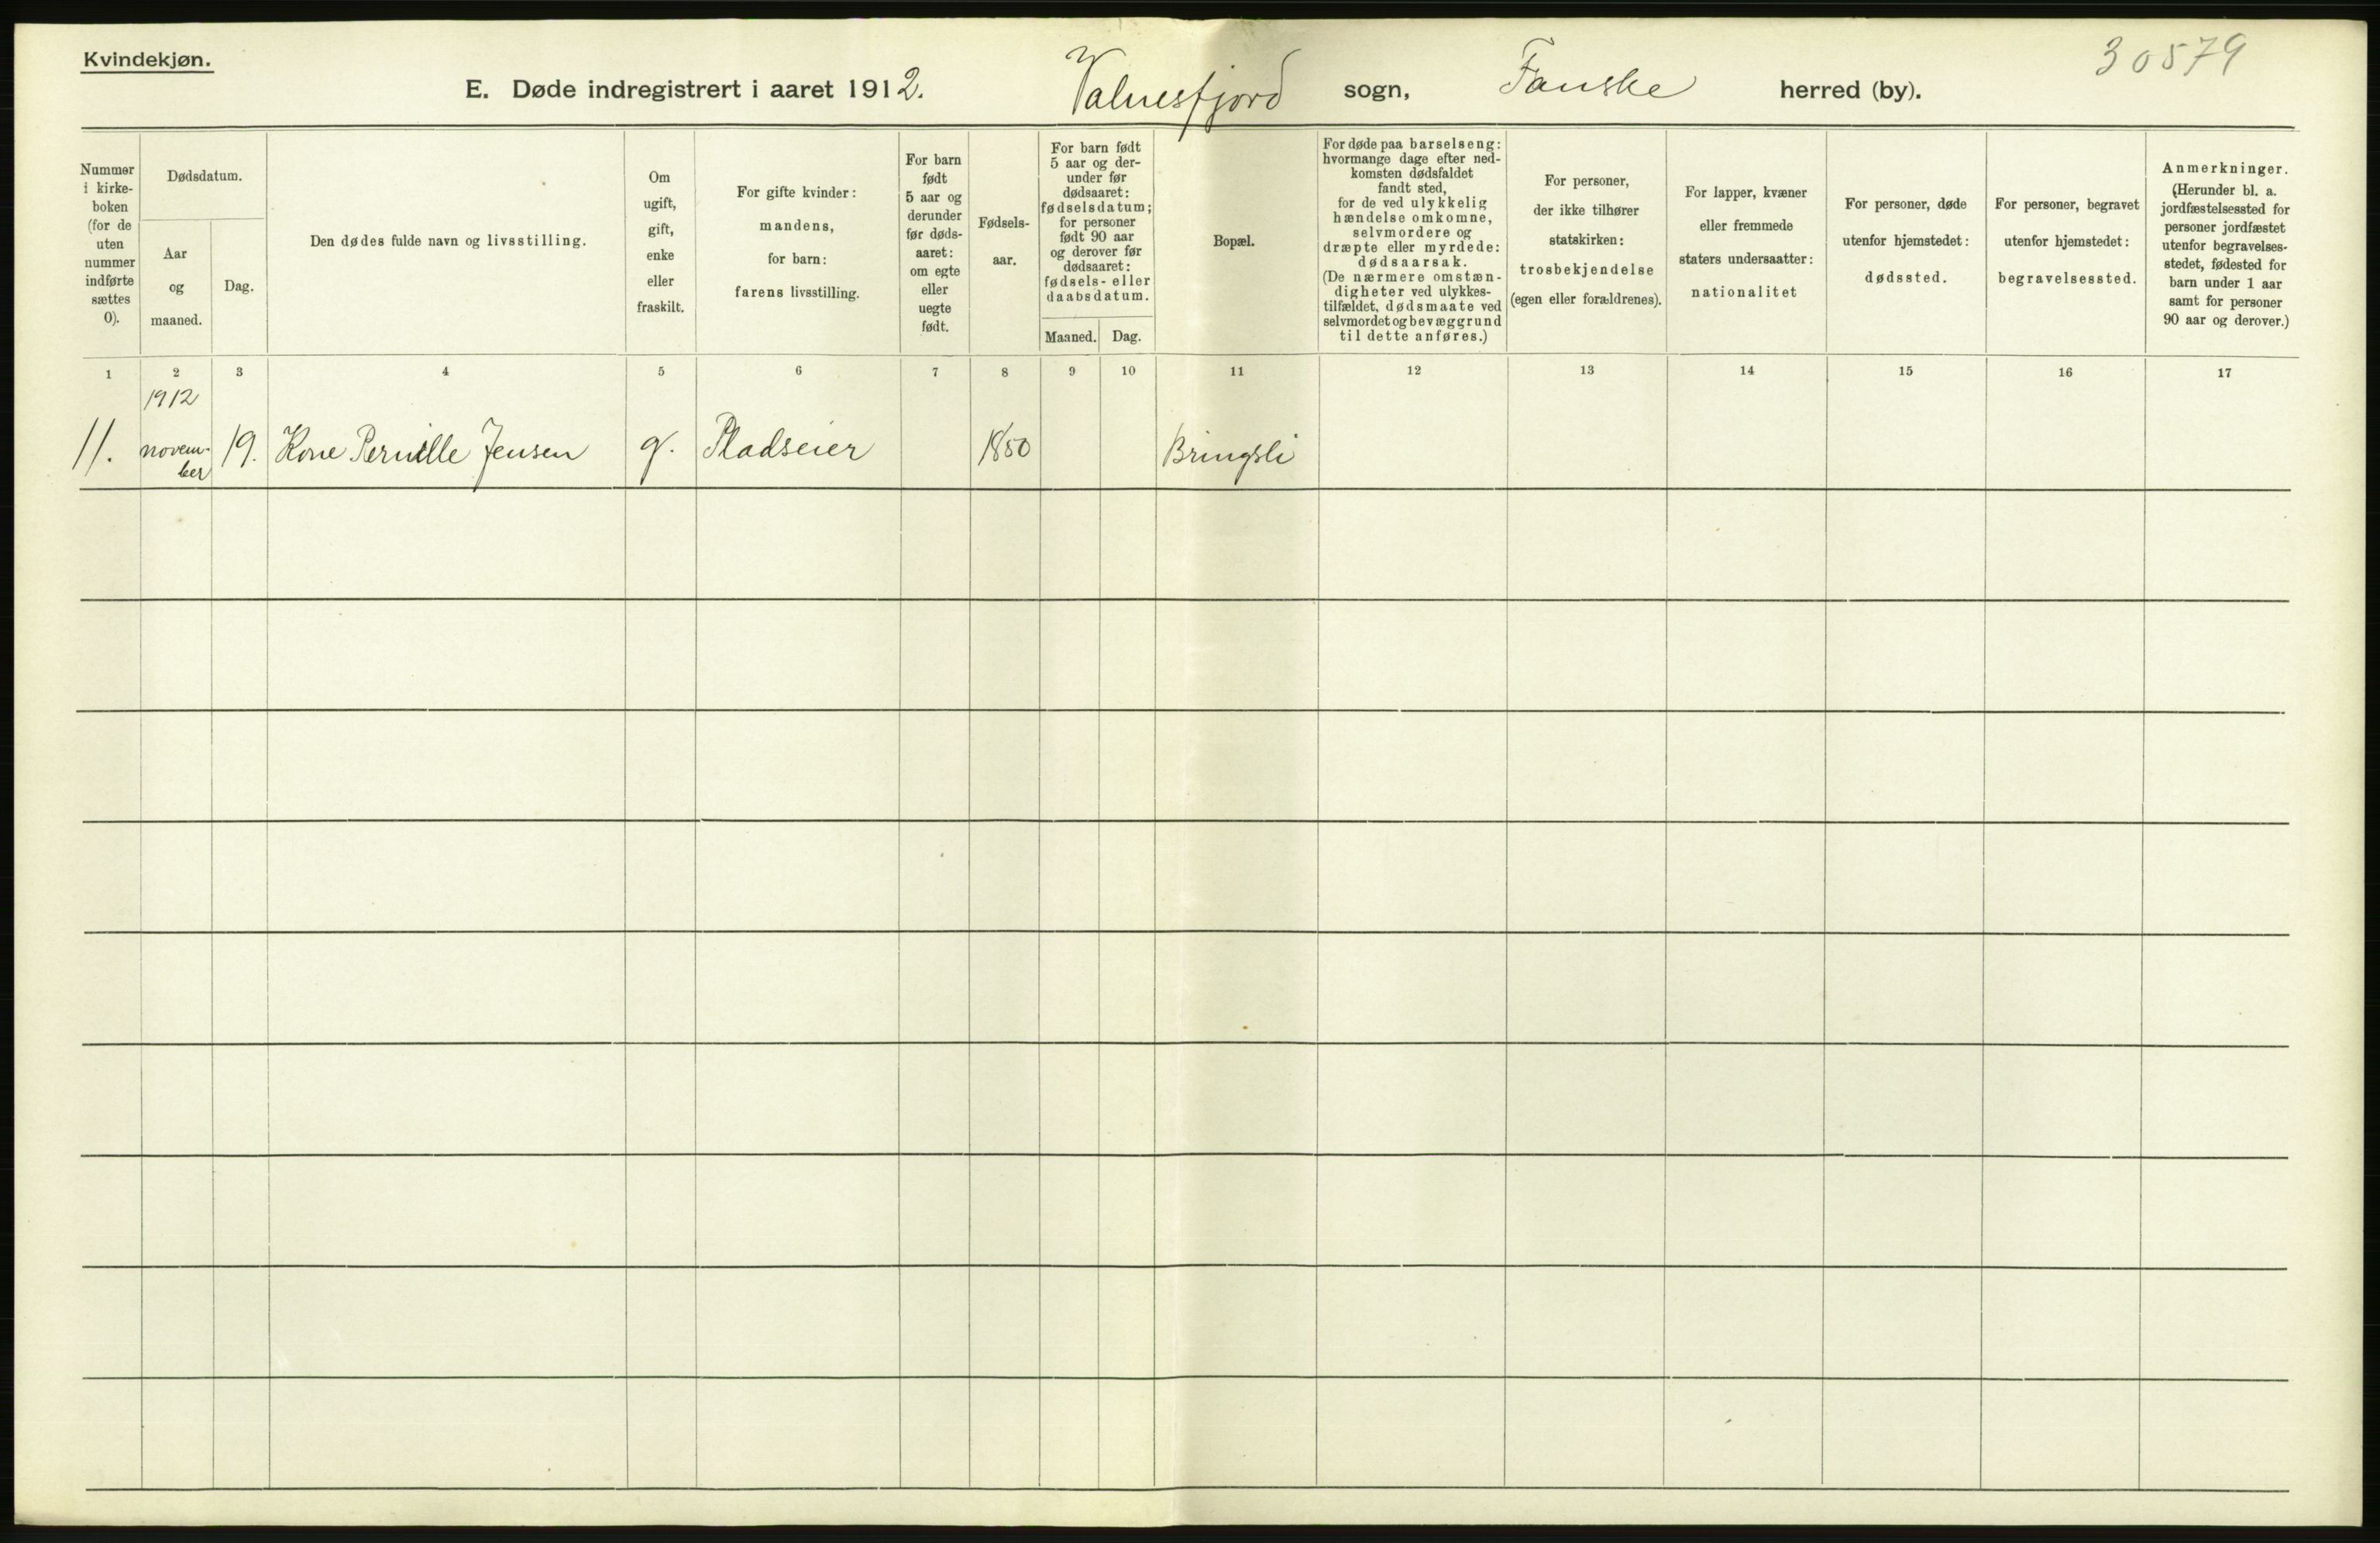 Kvindekjøn.
30579
E. Døde indregistrert i aaret 1912. Valnesfjord sogn, Fauske herred (by).
Nummer
i kirke-
boken
(for de
uten
nummer
indførte
sættes
0).
Dødsdatum.
Aar
og
maaned.
Dag.
Den dødes fulde navn og livsstilling.
Om
ugift,
gift,
enke
eller
fraskilt.
For gifte kvinder:
mandens,
for barn:
farens livsstilling.
For barn
født
5 aar og
derunder
før døds-
aaret:
om egte
eller
uegte
født.
Fødsels-
aar.
For barn født
5 aar og der-
under før
dødsaaret:
fødselsdatum;
for personer
født 90 aar
og derover før
dødsaaret:
fødsels- eller
daabsdatum.
Maaned.
Dag.
Bopæl.
For døde paa barselseng:
hvormange dage efter ned-
komsten dødsfaldet
fandt sted,
for de ved ulykkelig
hændelse omkomne,
selvmordere og
dræpte eller myrdede:
dødsaarsak.
(De nærmere omstæn-
digheter ved ulykkes-
tilfældet, dødsmaate ved
selvmordet og bevæggrund
til dette anføres.)
For personer,
der ikke tilhører
statskirken:
trosbekjendelse
(egen eller forældrenes).
For lapper, kvæner
eller fremmede
staters undersaatter:
nationalitet
For personer, døde
utenfor hjemstedet:
dødssted.
For personer, begravet
utenfor hjemstedet:
begravelsessted.
Anmerkninger.
(Herunder bl. a.
jordfæstelsessted for
personer jordfæstet
utenfor begravelses-
stedet, fødested for
barn under 1 aar
samt for personer
90 aar og derover.)
1 2 3 4 5 6 7 8 9 10 11 12 13 14 15 16 17
1912
11. novem- 19. Kone Pernille Jensen g. Pladseier 1850 Bringsli
ber